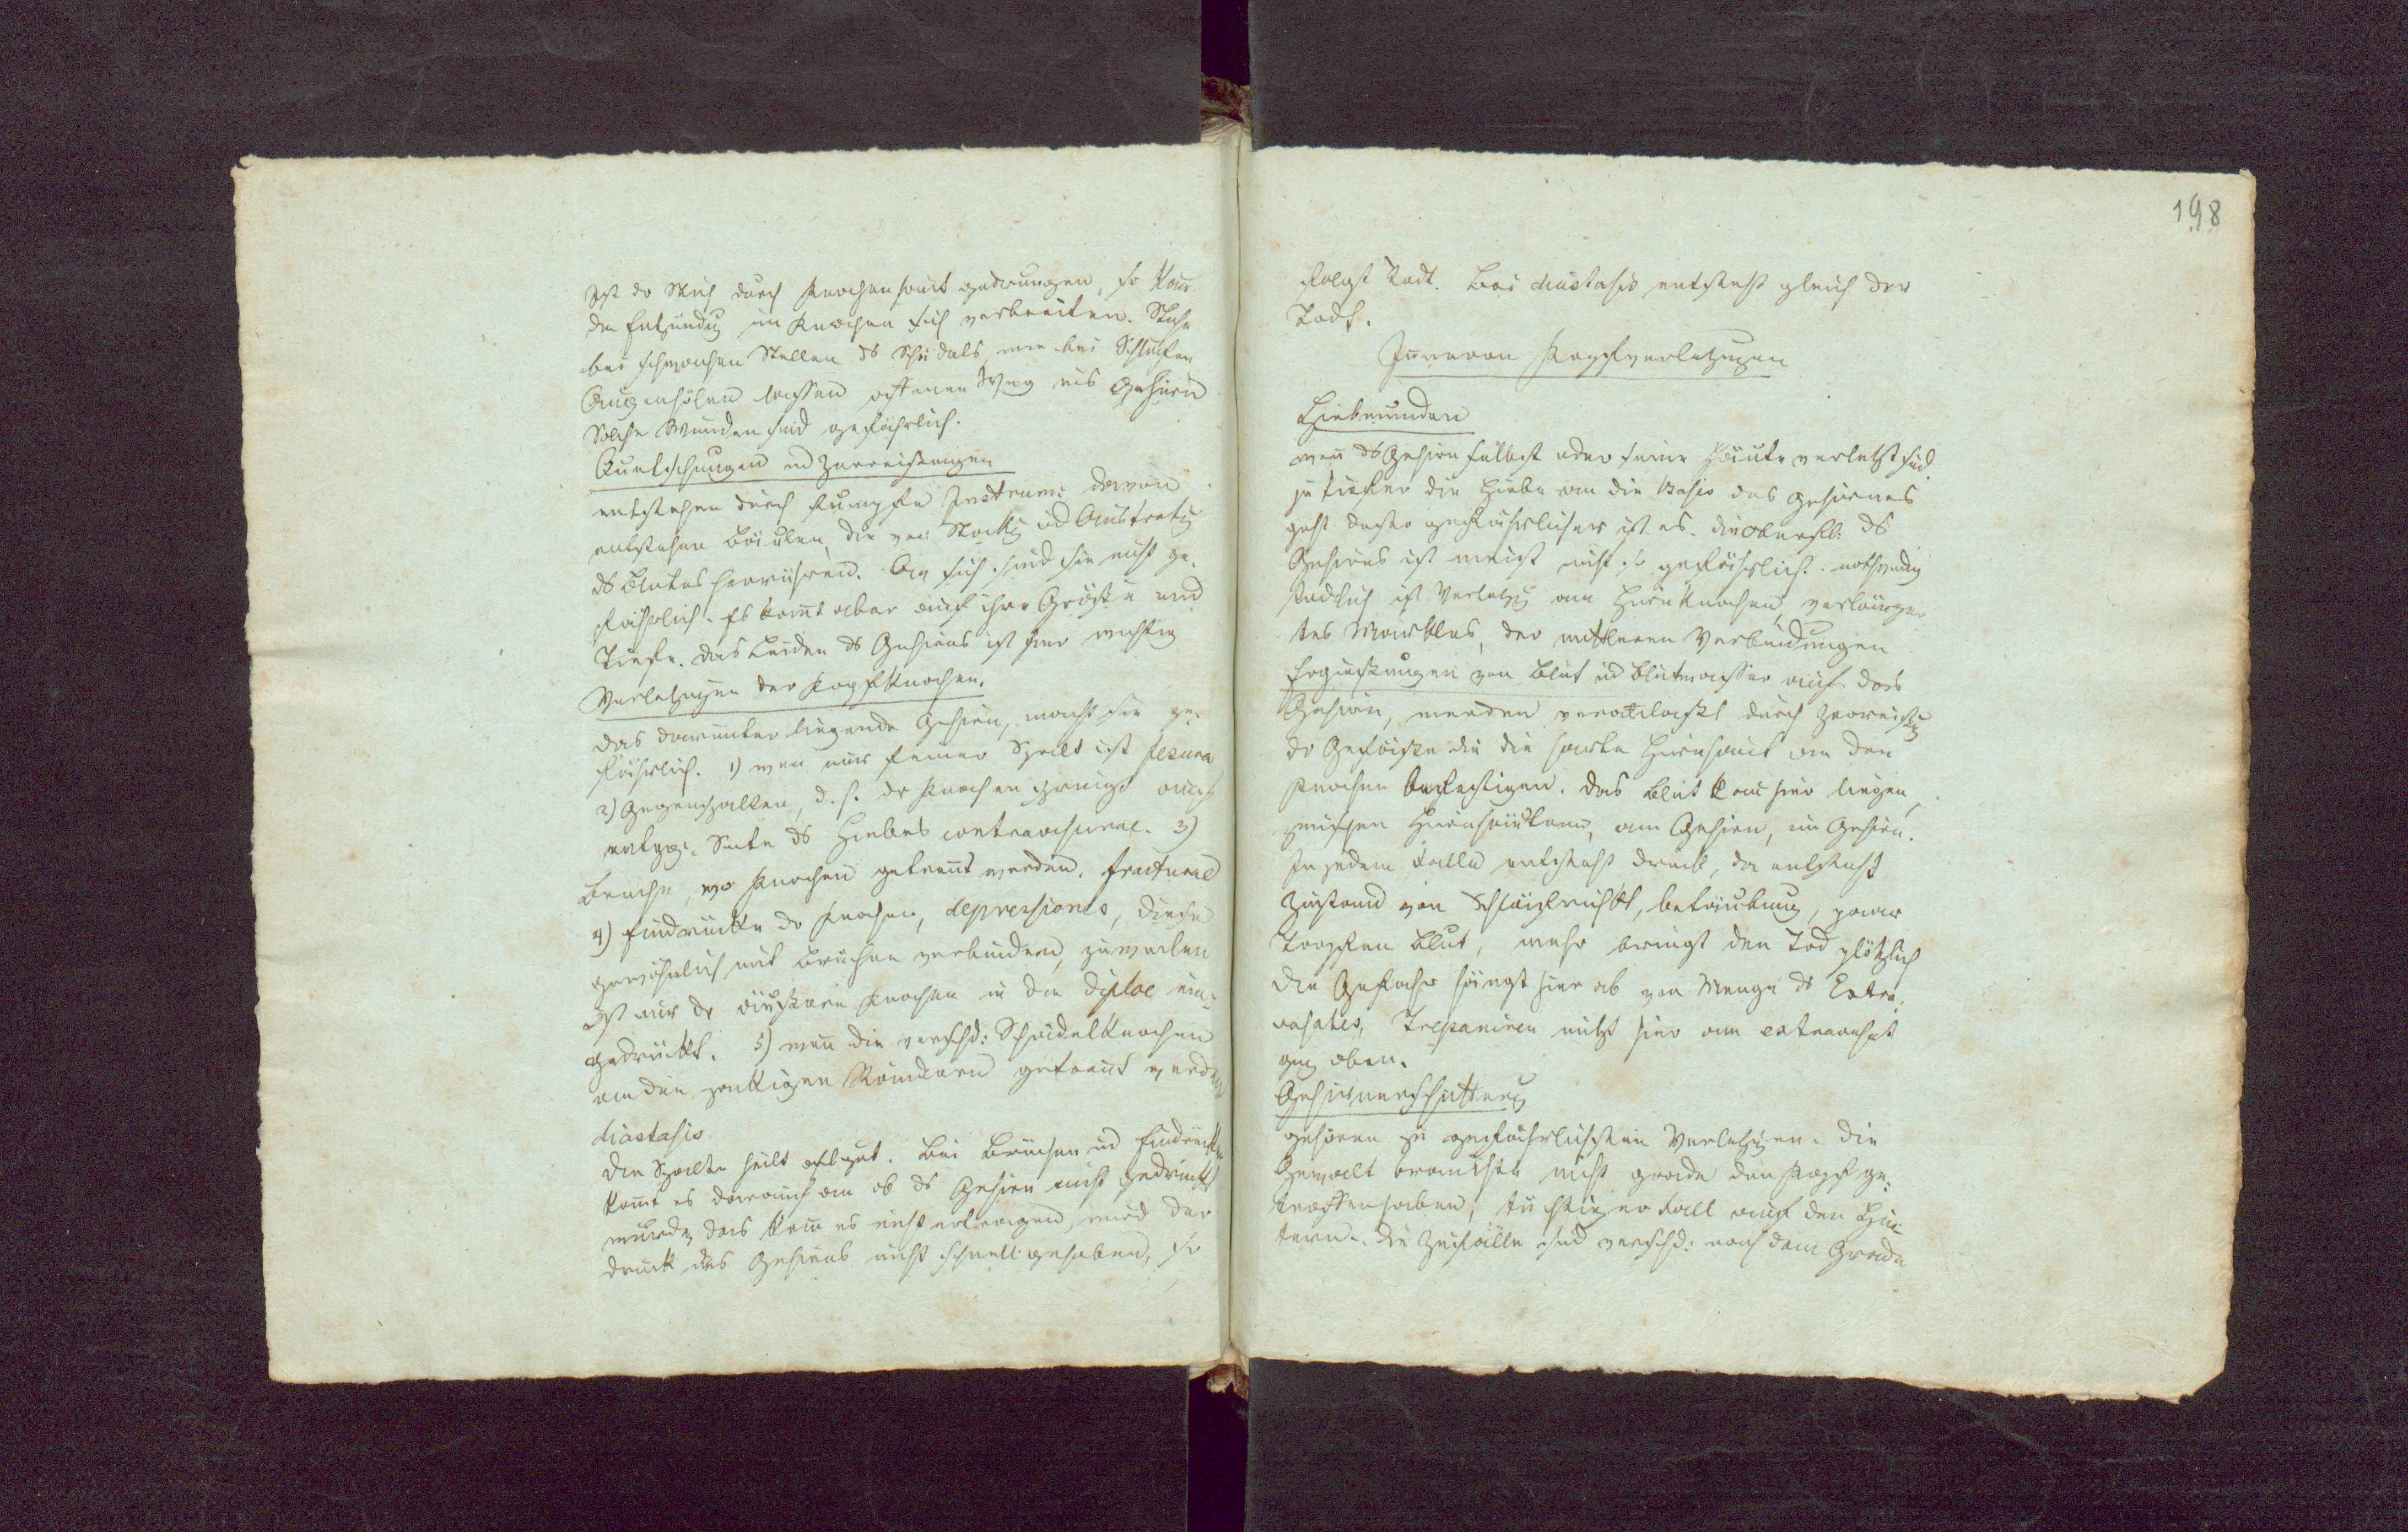 Ist der Stich durch Knochenhaut gedrungen, so kann
die Entzündung im Knochen sich verbreiten. Stiche
bei schwachen Stellen des Schädels, wie bei Schläfen
Augenhöhlen lassen offenen Weg ins Gehirn
Solche Wunden sind gefährlich.
Quetschungen und Zerreißungen
entstehen durch stumpfe Instrum: davon
entstehen Beulen, die von Stockung und Austretung
des Blutes herrühren. An sich sind sie nicht ge-
fährlich. Es kommt aber auf ihre Größe und
Tiefe. das Leiden des Gehirns ist hier wichtig
Verletzungen der Kopfknochen.
das darunter liegende Gehirn, macht sie ge-
fährlich. 1) wenn nur feiner Spalt ist fissura
2) Gegenspalten, d. h. der Knochen springt auf
entgg. Seite des Hiebes contrafissurae. 3)
Brüche, wo Knochen getrennt werden. fracturae
4) Eindrücke der Knochen, depressiones, diese
gewöhnlich mit Brüchen verbunden, zuweilen
ist nur der äußere Knochen in die diploe ein-
gedrückt. 5) wenn die verschd: Schädelknochen
an den zackigen Rändern getrennt werden
diastasis
Die Spalte heilt oft gut. Bei Brüchen und Eindrücken
kommt es darauf an ob das Gehirn nicht gedrückt
wurde, das kann es nicht ertragen, wird der
Druck des Gehirns nicht schnell gehoben, so
198
folgt Todt. Bei diastasis entsteht gleich der
Todt.
Inneren Kopfverletzungen
Hiebwunden
wenn das Gehirn selbst oder seine Häute verletzt sind
je tiefer die Hiebe an die Basis des Gehirnes
geht desto gefährlicher ist es. die Oberfl: des
Gehirns ist meist nicht so gefährlich. nothwendig
tödtlich ist Verletzung am Hirnknochen, verlänger-
tes Markes, der mittleren Verbindungen
Ergießungen von Blut und Blutwasser auf das
Gehirn, werden veranlaßt durch Zerreißung
der Gefäße die die harte Hirnhaut an den
Knochen befestigen. das Blut kann hier liegen,
zwischen Hirnhäuten, am Gehirn, im Gehirn.
In jedem Falle entsteht Druck, da entsteht
Zustand von Schläfrichkt, betäubung, paar
Tropfen Blut, mehr bringt den Tod plötzlich
Die Gefahr hängt hier ab von Menge des Extra-
vasates, Trepaniren nützt hier wenn extravasat
ganz oben.
Gehirnerschütterung
gehören zu gefährlichsten Verletzungen. Die
Gewalt brauchte nicht grade den Kopf ge-
troffen haben, tüchtiger Fall auf den Hin-
tern. Die Zufälle sind verschd: nach dem Grade